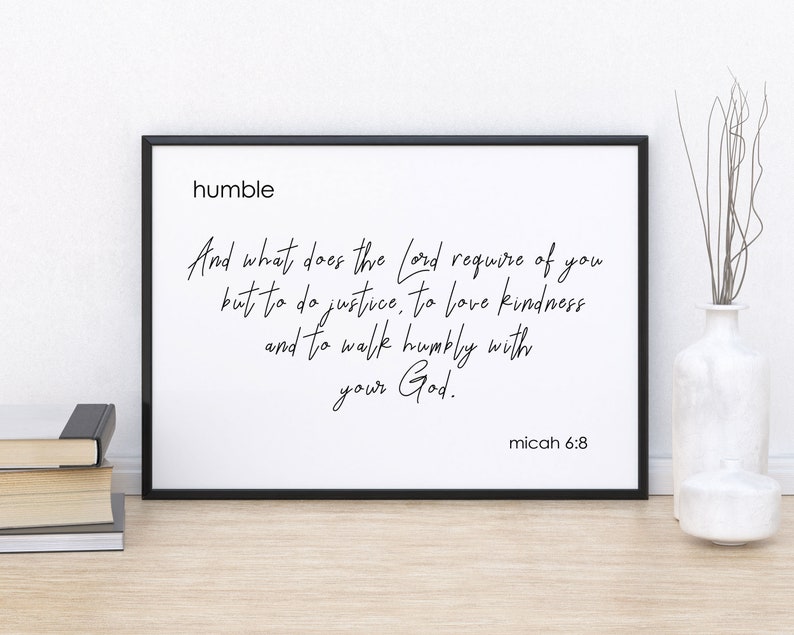 humble
And what does the Lord require of you
but to do justice, to love kindness
and to walk humbly with
your God.
micah 6:8